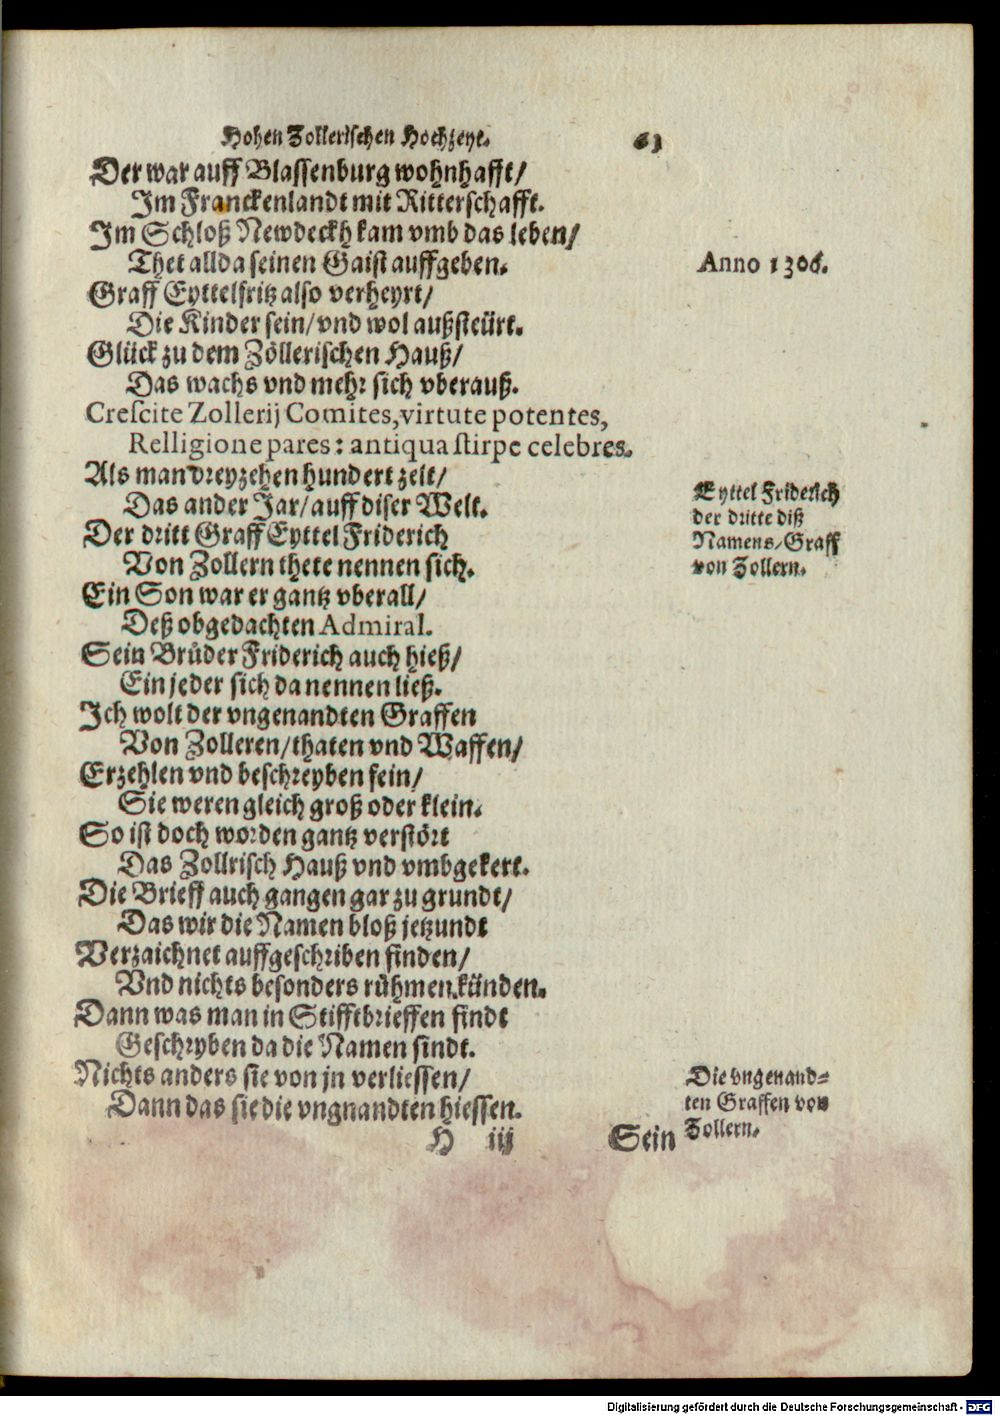 Hohen Zollerischen Hochzeyt. 61
Der war auff Blassenburg wohnhafft/
Im Franckenlandt mit Ritterschafft.
Im Schloß Newdeckh kam vmb das leben/
Thet allda seinen Gaist auffgeben.
Anno 1306.
Graff Eyttelfritz also verheyrt/
Die Kinder sein/ vnd wol außsteürt.
Glück zu dem Zöllerischen Hauß/
Das wachs vnd mehr sich vberauß.
Crescite Zollerij Comites, virtute potentes,
Relligione pares: antiqua stirpe celebres.
Als man dreyzehen hundert zelt/
Das ander Jar/ auff diser Welt.
Der dritt Graff Eyttel Friderich
Von Zollern thete nennen sich.
Eyttel Friderich
der dritte diß
Namens/ Graff
von Zollern.
Ein Son war er gantz vberall/
Deß obgedachten Admiral.
Sein Brůder Friderich auch hieß/
Ein jeder sich da nennen ließ.
Ich wolt der vngenandten Graffen
Von Zolleren/ thaten vnd Waffen/
Erzehlen vnd beschreyben fein/
Sie weren gleich groß oder klein.
So ist doch worden gantz verstört
Das Zollrisch Hauß vnd vmbgekert.
Die Brieff auch gangen gar zu grundt/
Das wir die Namen bloß jetzundt
Verzaichnet auffgeschriben finden/
Vnd nichts besonders rühmen künden.
Dann was man in Stifftbrieffen findt
Geschryben da die Namen sindt.
Nichts anders sie von jn verliessen/
Dann das sie die vngnandten hiessen.
Die vngenand-
ten Graffen von
Zollern.
H iij Sein
Digitalisierung gefördert durch die Deutsche Forschungsgemeinschaft - DFG